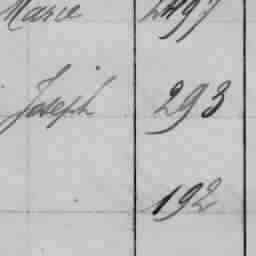 Marie 2497
Joseph 293
192